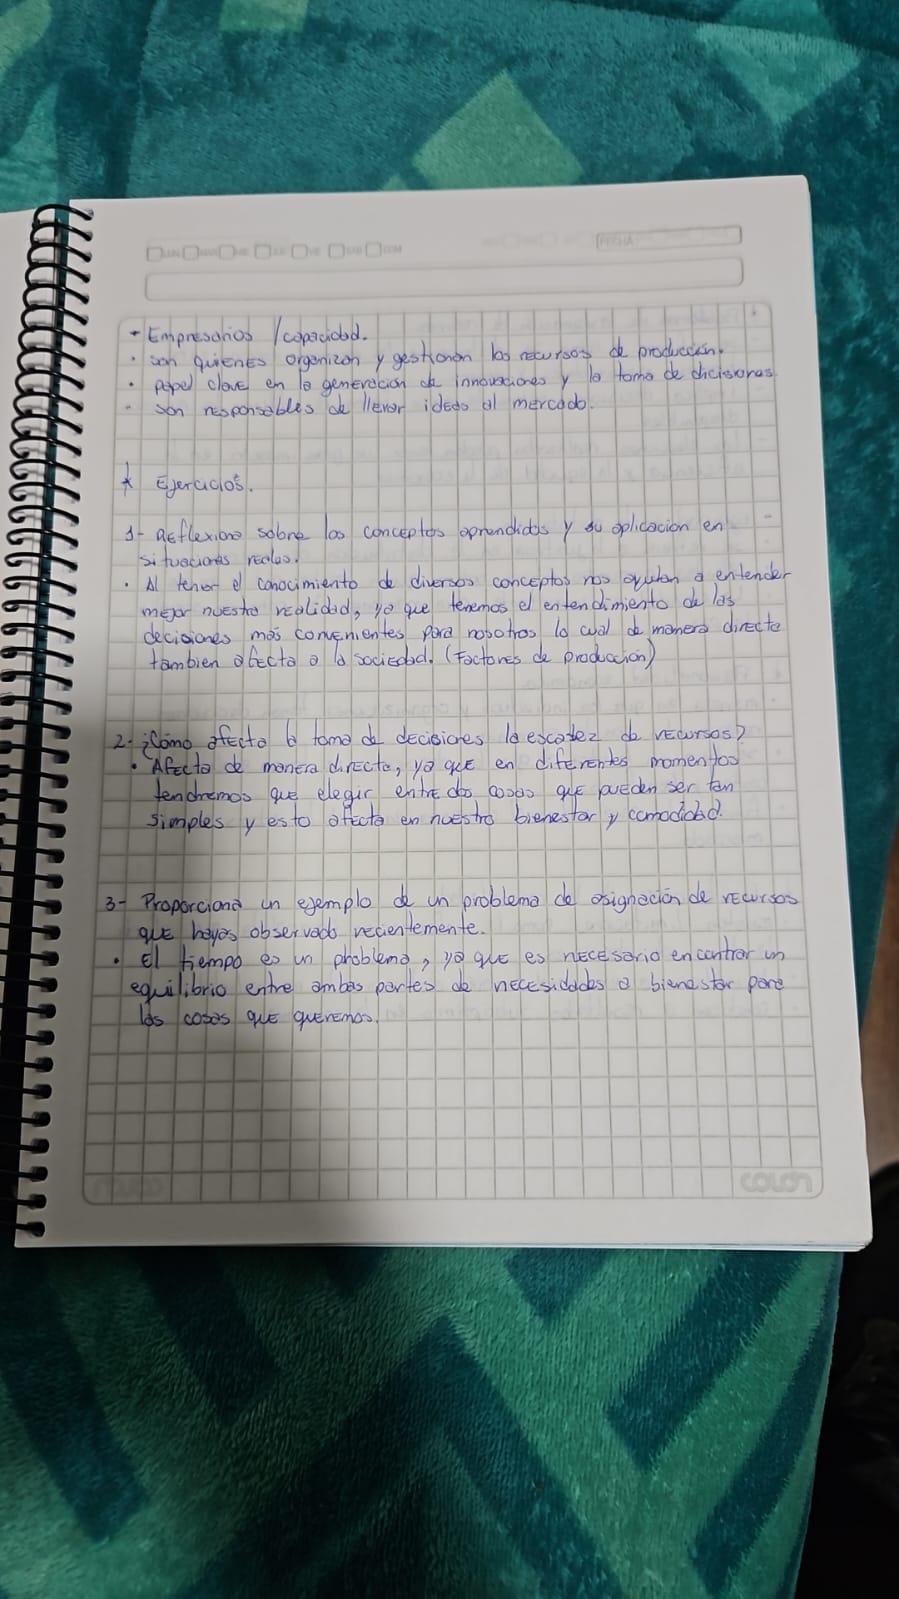 LUN MAR MIE JUE VIE SAB DOM
FECHA
- Empresarios / capacidad.
· son quienes organizan y gestionan los recursos de producción.
· papel clave en la generación de innovaciones y la toma de dicisiones
- son responsables de llevar ideas al mercado.
* Ejercicios.
1- Reflexiona sobre los conceptos aprendidos y su aplicación en
situaciones reales.
· Al tener el conocimiento de diversos conceptos nos ayudan a entender
mejor nuestra realidad, ya que tenemos el entendimiento de las
decisiones más convenientes para nosotros lo cual de manera directa
tambien afecta a la sociedad. (Factores de producción)
2- ¿Cómo afecta la toma de decisiones la escasez de recursos?
· Afecta de manera directa, ya que en diferentes momentos
tendremos que elegir entre dos cosas que pueden ser tan
simples y esto afecta en nuestro bienestar y comodidad.
3- Proporciona un ejemplo de un problema de asignación de recursos
que hayas observado recientemente.
· El tiempo es un problema, ya que es necesario encontrar un
equilibrio entre ambas partes de necesidades a bienestar para
las cosas que queremos.
COLOR